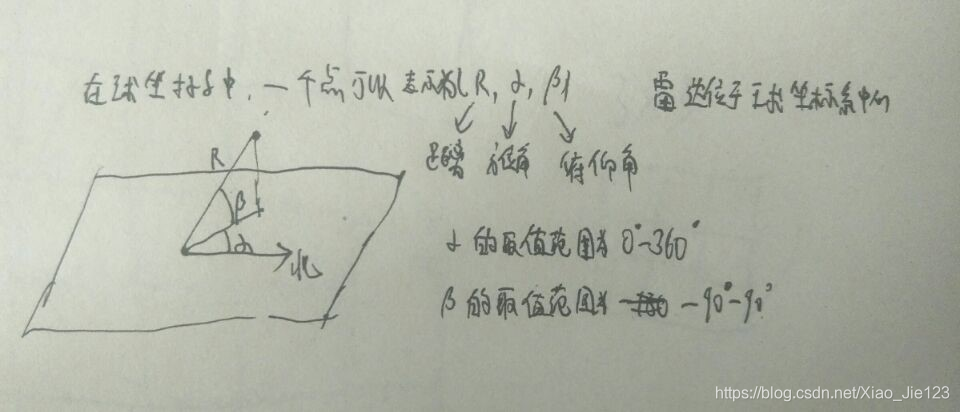 在球坐标系中，一个点可以表示为(R, α, β)
雷达位于球坐标系中心
距离 方位角 俯仰角
R
β
α
北
α的取值范围为 0°-360°
β的取值范围为 -90°-90°
https://blog.csdn.net/Xiao_Jie123